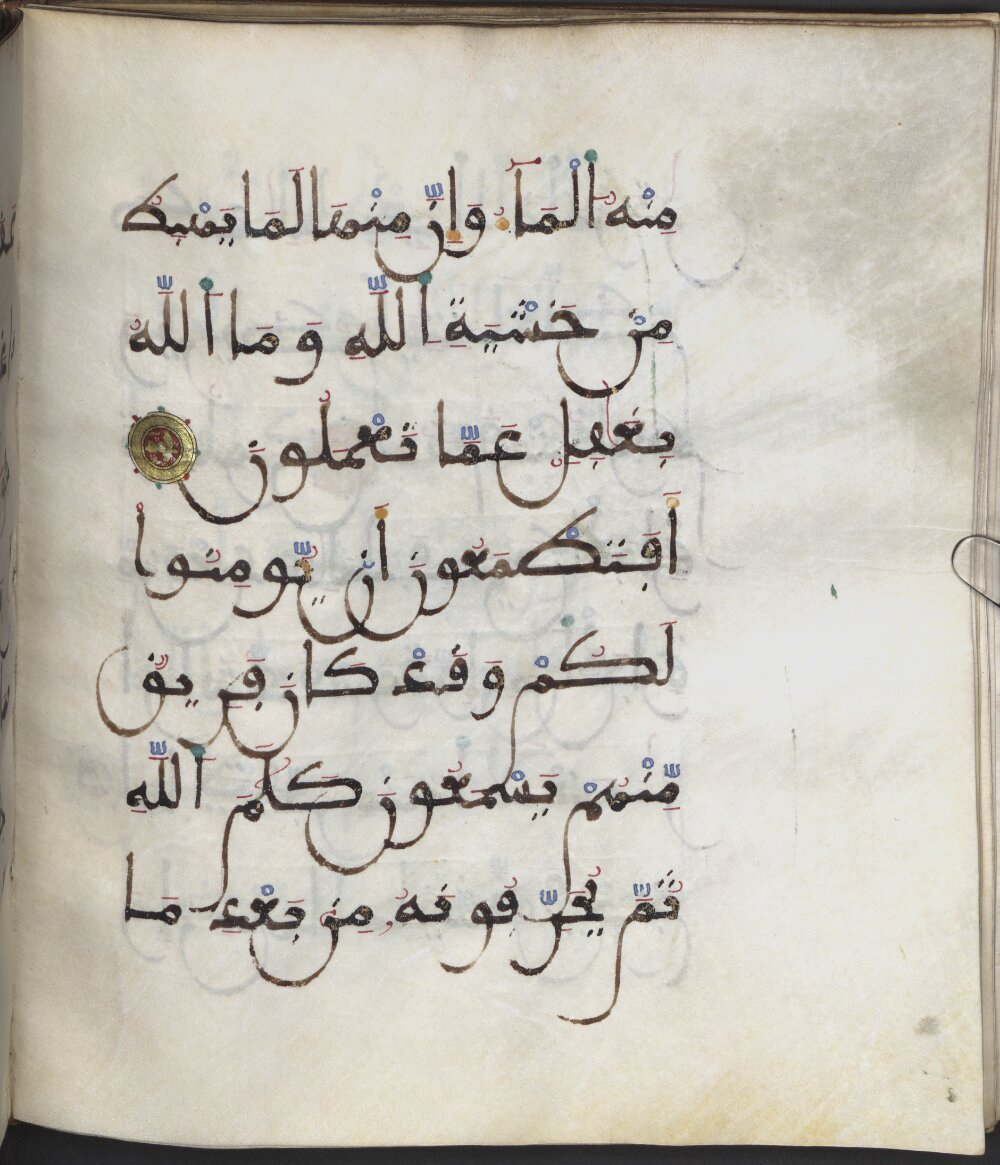 مِنْهُ الْمَآءُ وَإِنَّ مِنْهَا لَمَا يَهْبِطُ
مِنْ خَشْيَةِ اللَّهِ وَمَا اللَّهُ
بِغَٰفِلٍ عَمَّا تَعْمَلُونَ
أَفَتَطْمَعُونَ أَنْ يُّومِنُوا
لَكُمْ وَقَدْ كَانَ فَرِيقٌ
مِّنْهُمْ يَسْمَعُونَ كَلَٰمَ اللَّهِ
ثُمَّ يُحَرِّفُونَهُ مِنْ بَعْدِ مَا